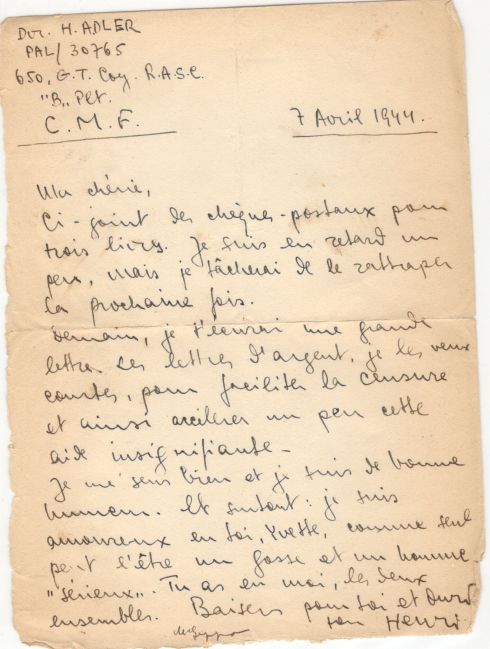 Dvr. H. ADLER
PAL/30765
650, G.T. Coy. R.A.S.C.
"B" Plt.
C. M. F.
7 Avril 1944.
Ma chérie,
Ci-joint des chèques-postaux pour
trois livres. Je suis en retard un
peu, mais je tâcherai de le rattraper
la prochaine fois.
Demain, je t'écrirai une grande
lettre. Les lettres d'argent, je les veux
courtes, pour faciliter la censure
et ainsi accélerer un peu cette
aide insignifiante.
Je me sens bien et je suis de bonne
humeur. Et surtout: je suis
amoureux en toi, Yvette, comme seul
peut l'être un gosse et un homme
"sérieux". Tu as en moi, les deux
ensembles. Baisers pour toi et
ton Henri